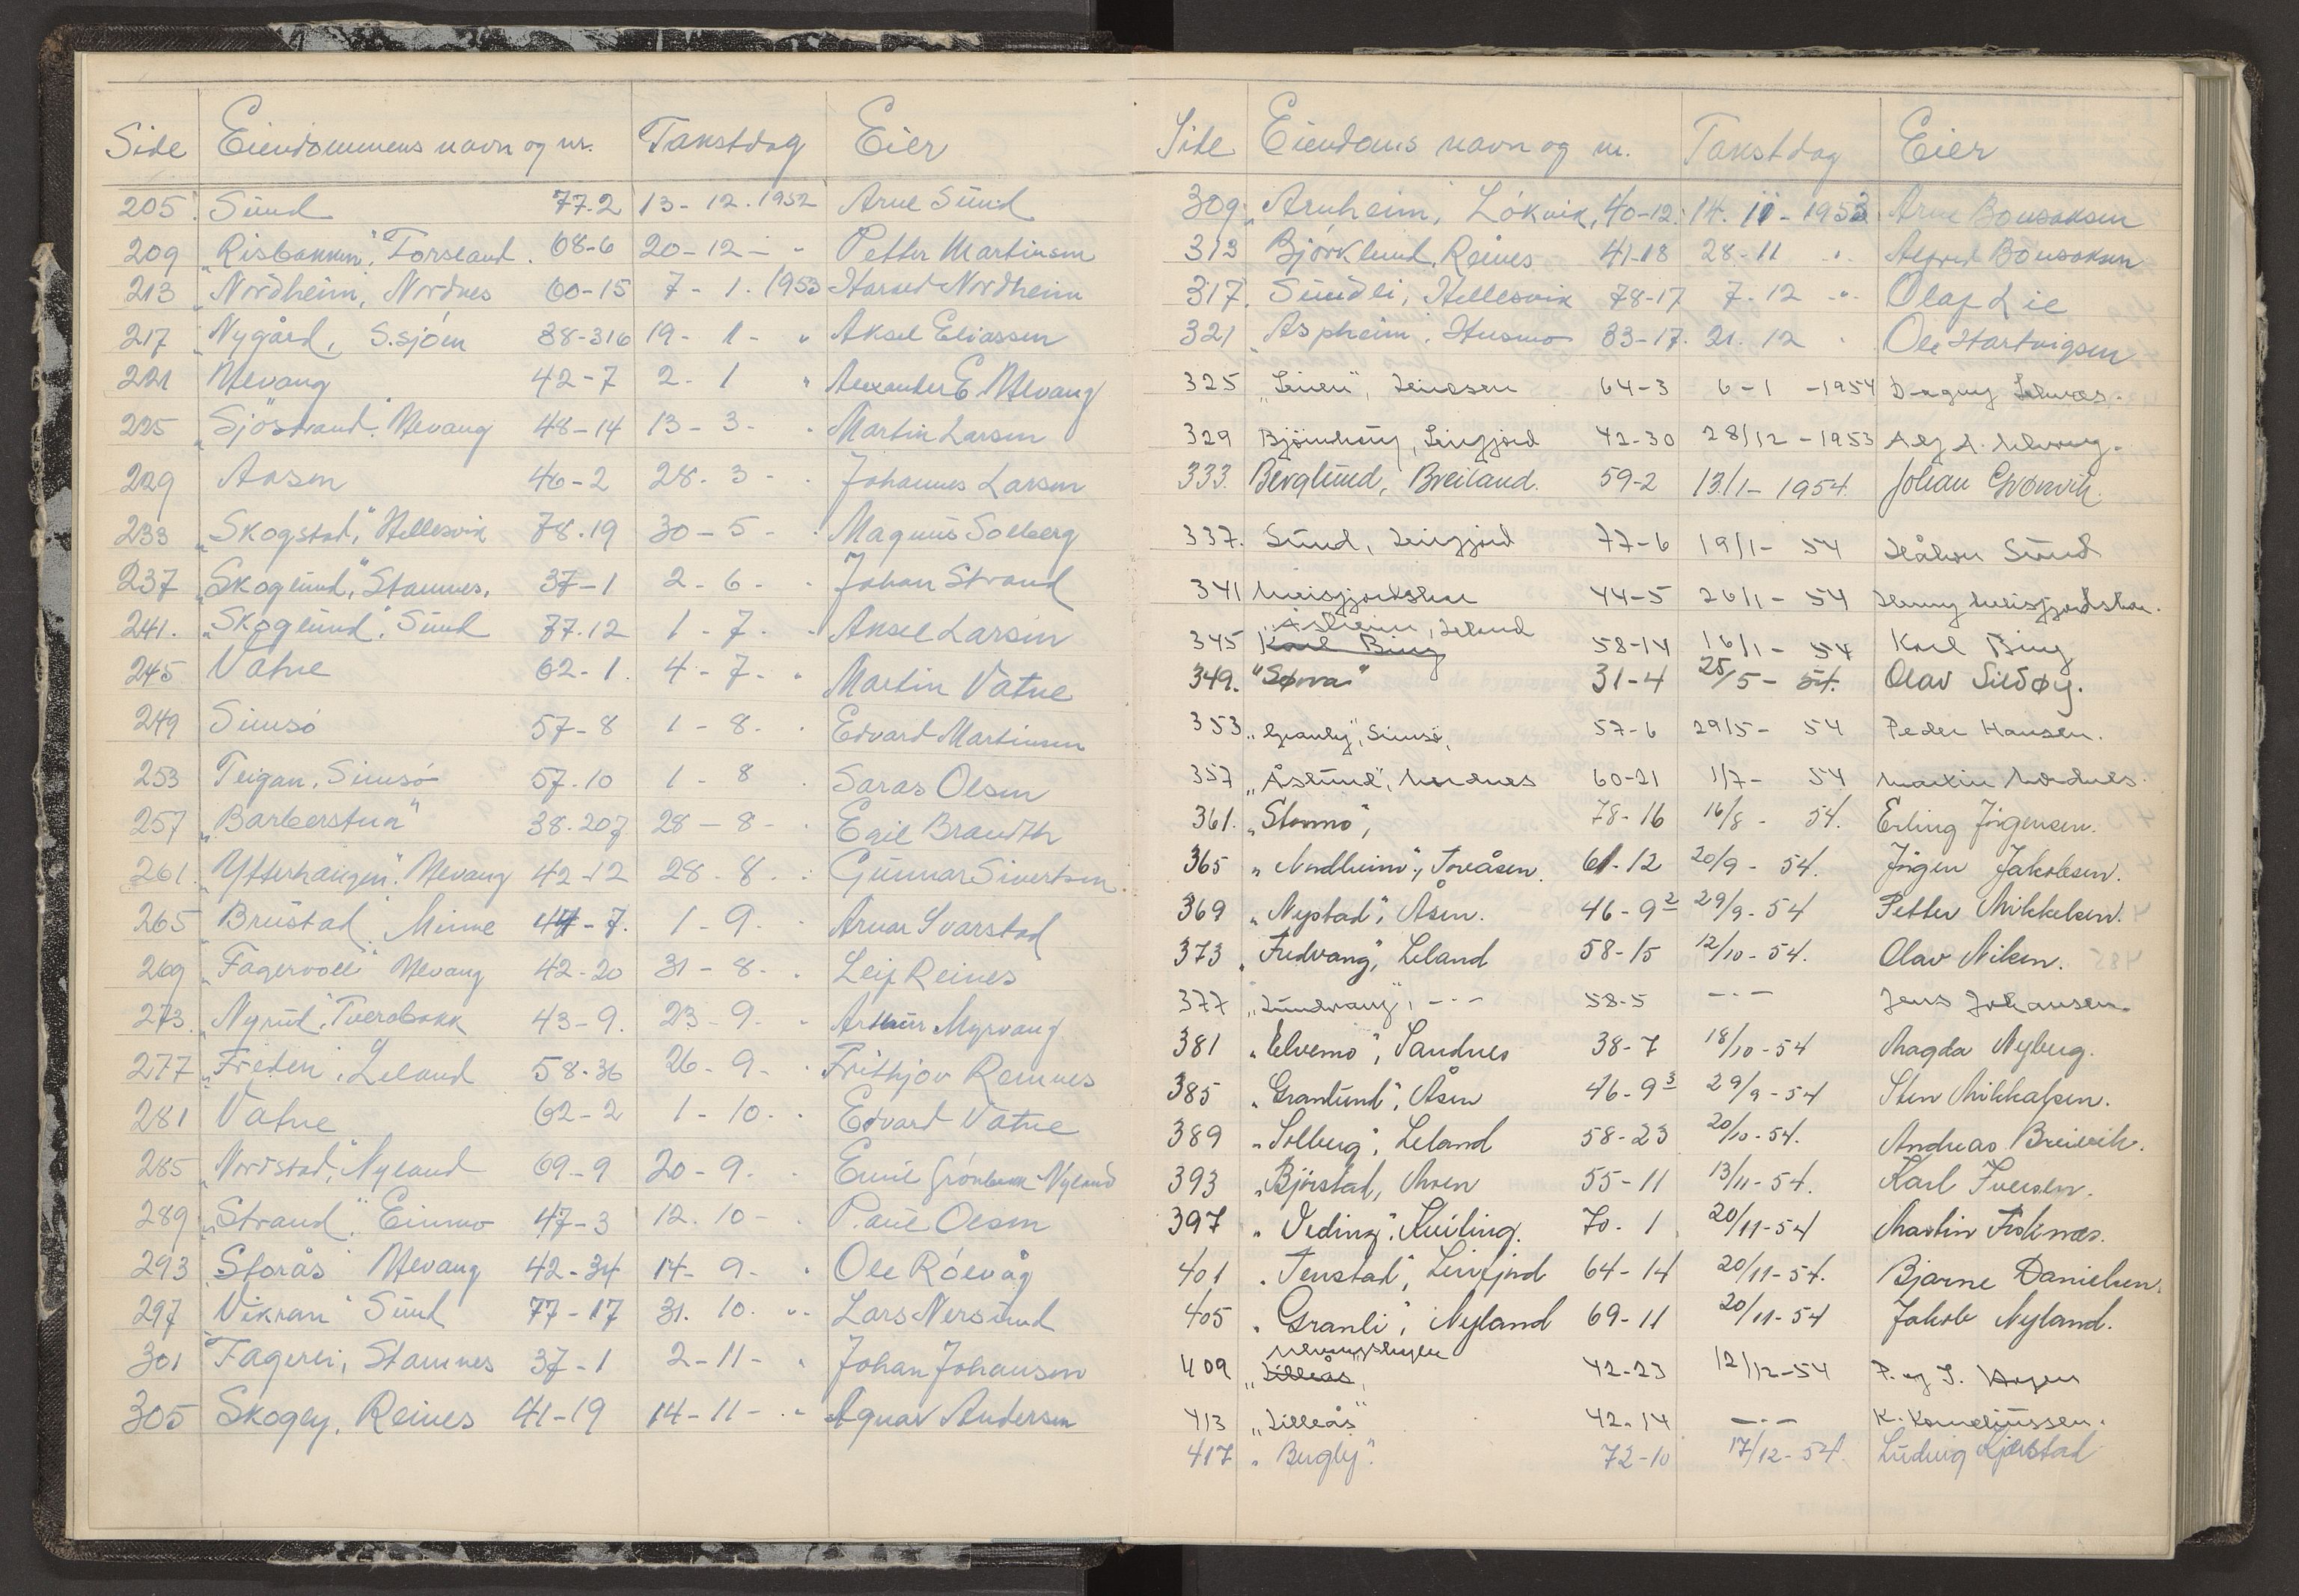 Side Eiendommens navn og nr. Takstdag Eier
205. Sund 77.2 13-12.1952 Arne Sund
209 „Risbakken", Forsland. 68-6 20-12- " Petter Martinsen
213 „Nordheim, Nordnes 60-15 7-1.1953 Harald Nordheim
217 „Nygård, S.sjøen 38-316 19-1- " Aksel Eliassen
221 Mevang 42-7 2-1 " Alexander E Mevang
225 „Sjöstrand". Mevang 48-14 13-3- " Martin Larsen
229 Aasen 46-2 28.3- . Johannes Larsen
233 „Skogstad," Hellesvik 78.19 30-5- . Magnus Solberg
237 „Skoglund," Stamnes. 37-1 2-6- . Johan Strand
241. „Skoglund". Sund 77.12 1-7. " Aksel Larsen
245 Vatne 62-1. 4-7- " Martin Vatne
249 Simsó 57-8 1-8. . Edvard Martinsen
253 Teigan, Simsó 57.10 1-8 . Saras Olsen
257 „Barberstua" 38.207 28-8- . Egil Brandth
261. „Ytterhaugen". Mevang 42-12 28-8. . Gunnar Sivertsen.
265 „Brustad" Minne 44-7. 1-9. . Arnar Svarstad
269 „Fagervoll" Mevang 42-20 31-8- . Leif Reines
273. „Nyrud". Tverabakk 43-9. 23-9. . Arthur Myrvang
277 „Freden". Leland 58-36 26-9- . Frithjov Remnes
281 Vatne 62-2 1-10. . Edvard Vatne
285 „Nordstad," Nyland 69-9 20-9. . Emil Grönbekk Nyland
289 „Strand". Einmo 47-3 12.10- . Paul Olsen
293 „Storås" Mevang 42-34 14-9. . Ole Rólvåg
297 „Vikran" Sund 77-17 31.10. " Lars Nersund
301 Fagerli, Stamnes 37-1 2-11- " Johan Johansen
305 Skogly. Reines 41-19 14-11- " Agnar Andersen
Side Eiendoms navn og nr. Takstdag Eier
309 „Arnheim, Lókvik, 40-12. 14.11-1953 Arne Bonsaksen
313 Björklund. Reines 41-18 28-11 " Alfred Bonsaksen
317. Sundli, Hellesvik 78-17 7.12 -"- Olaf Lie
321 „Aspheim". Husmo 33-17. 21.12 . Ole Hartvigsen
325 „Leiren", Leinesen 64-3 6-1-1954 Dagny
329 Björnhaug, Leirfjord 42-30 28/12-1953 Alf A.
333. Berglund, Breiland. 59-2 13/1-1954. Johan
337. Sund, Leirfjord 77-6 19/1-54 Håkon Sund
341 Meisfjordshei 44-5 26/1-54 Henny
„Åsheim, Leland
345 Karl Bing 58-14 16/1-54 Karl Bing
349. "Sørra" 31-4 25/5-54. Olav Sildøy.
353. „Granly", Simsó, 57-6 29/5-54 Peder Hansen.
357 „Åslund", Nordnes 60-21 1/7-54 Martin Nordnes.
361. „Stormo", 78-16 16/8-54. Erling Jörgensen.
365 „Nordheim", Toveåsen. 61-12 20/9-54. Jörgen Jakobsen.
369 „Nystad", Åsen. 46-9² 29/9-54 Petter Mikkelsen.
373 „Fredvang", Leland 58-15 12/10-54. Olav Nilsen.
377 „Lundvang", -"- 58-5 -"- Jens Johansen.
381 „Elvemo", Sandnes 38-7 18/10-54 Magda Nyberg.
385 „Granlund", Åsen 46-9³ 29/9-54 Sten Mikkalsen.
389 „Solberg", Leland 58-23 20/10-54. Andreas Breivik.
393 „Björstad, Moen 55-11 13/11-54. Karl Iversen.
397 „Veding", 70-1 20/11-54 Martin
401 „Tenstad", Leirfjord 64-14 20/11-54. Bjarne Danielsen.
405 „Granli", Nyland 69-11 20/11-54 Jakob Nyland.
409 „Lilleås", 42-23 12/12-54 P. og J.
413 „Lilleås" 42-14 -"- K. Korneliussen.
417 „Bugly". 72-10 17/12-54. Ludvig Kjerstad